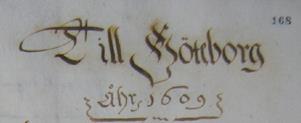 168
Till Göteborg
Åhr, 1609